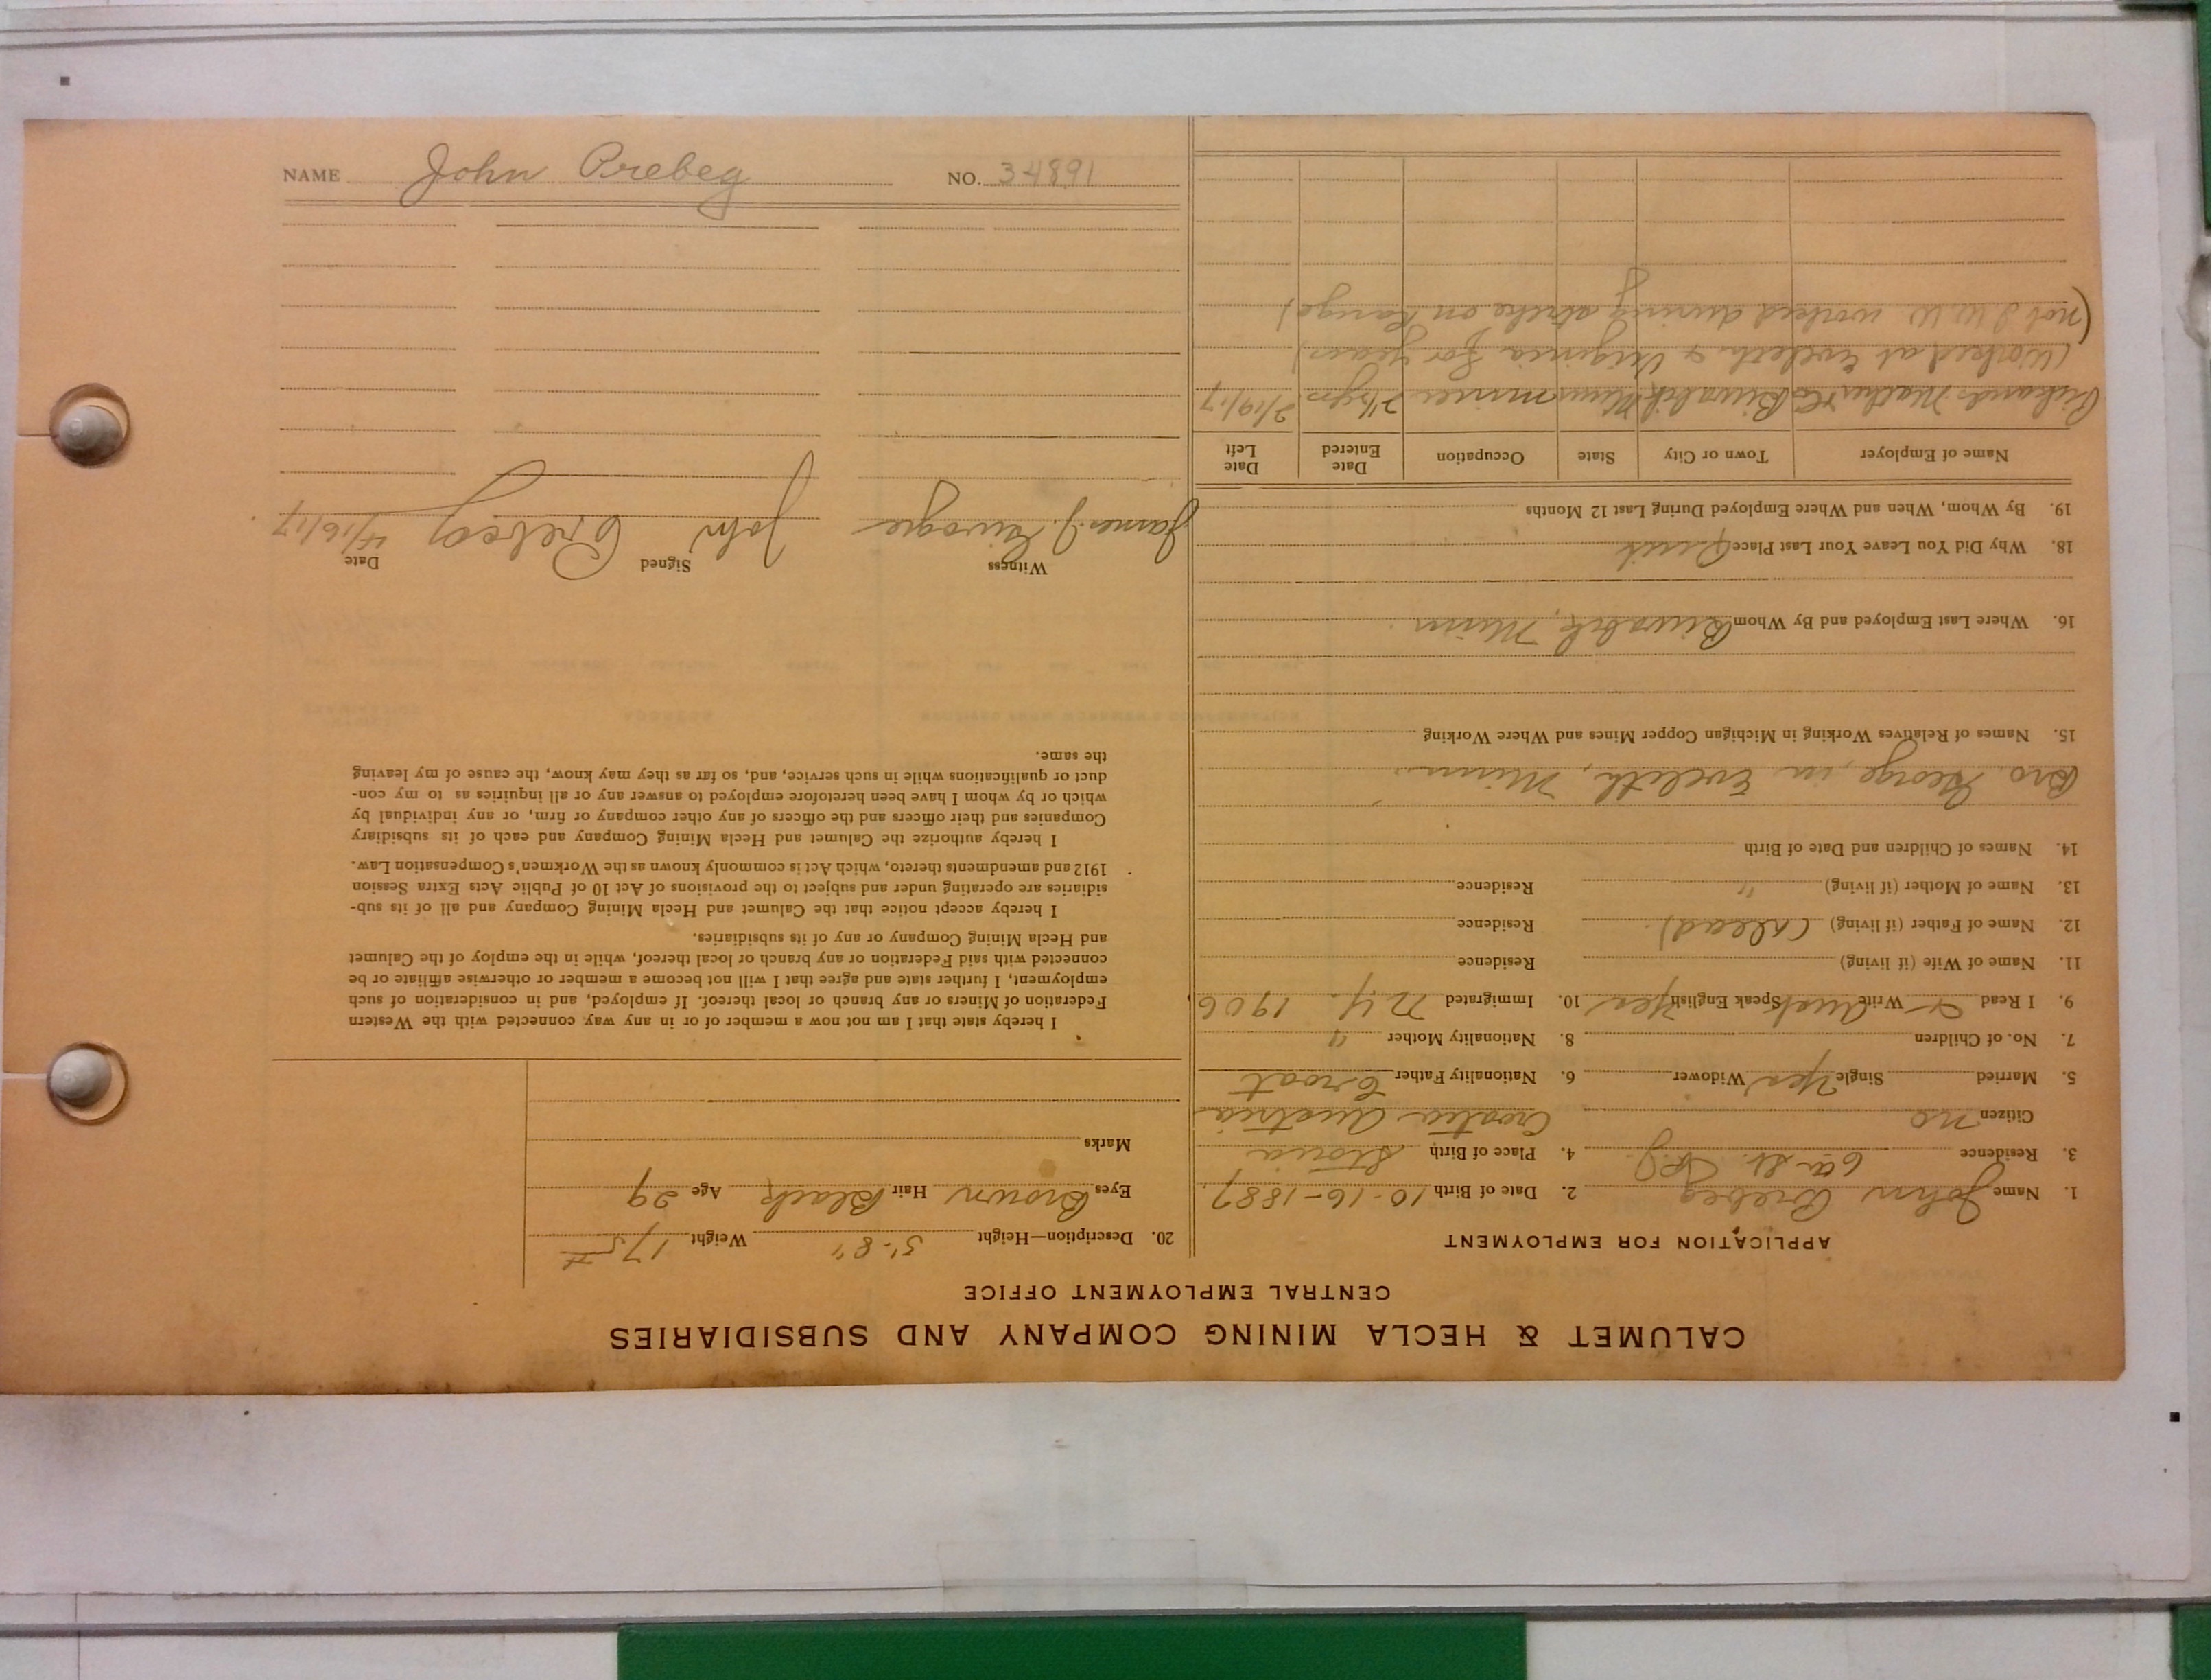 CALUMET & HECLA MINING COMPANY AND SUBSIDIARIES
CENTRAL EMPLOYMENT OFFICE
APPLICATION FOR EMPLOYMENT
1. Name John Prebeg 2. Date of Birth 10-16-1887
3. Residence 6 a St. 4. Place of Birth
Citizen no Croatia Austria
5. Married Single Yes Widower 6. Nationality Father Croat
7. No. of Children 8. Nationality Mother "
9. I Read Write Aust Speak English Yes 10. Immigrated N.Y. 1906
11. Name of Wife (if living) Residence
12. Name of Father (if living) (dead) Residence
13. Name of Mother (if living) " Residence
14. Names of Children and Date of Birth
Bro. George, in Eveleth, Minn.
15. Names of Relatives Working in Michigan Copper Mines and Where Working
16. Where Last Employed and By Whom Biwabik, Minn
18. Why Did You Leave Your Last Place Quit
19. By Whom, When and Where Employed During Last 12 Months
Name of Employer Town or City State Occupation Date Entered Date Left
Pickands Mather & Co Biwabik Minn miner 2 1/2 yrs 2/19/17
(Worked at Eveleth & Virginia for years)
(not I.W.W. worked during strike on Range)
20. Description—Height 5'-8" Weight 175#
Eyes Brown Hair Black Age 29
Marks
I hereby state that I am not now a member of or in any way connected with the Western
Federation of Miners or any branch or local thereof. If employed, and in consideration of such
employment, I further state and agree that I will not become a member or otherwise affiliate or be
connected with said Federation or any branch or local thereof, while in the employ of the Calumet
and Hecla Mining Company or any of its subsidiaries.
I hereby accept notice that the Calumet and Hecla Mining Company and all of its sub-
sidiaries are operating under and subject to the provisions of Act 10 of Public Acts Extra Session
1912 and amendments thereto, which Act is commonly known as the Workmen's Compensation Law.
I hereby authorize the Calumet and Hecla Mining Company and each of its subsidiary
Companies and their officers and the officers of any other company or firm, or any individual by
which or by whom I have been heretofore employed to answer any or all inquiries as to my con-
duct or qualifications while in such service, and, so far as they may know, the cause of my leaving
the same.
Witness Signed Date
James J. John Prebeg 4/16/17
NAME John Prebeg NO. 34891